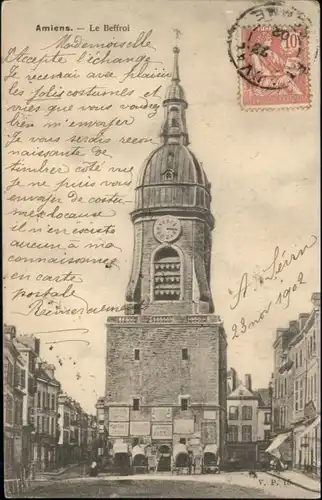 Amiens. - Le Beffroi
Mademoiselle
J'accepte l'échange
Je recevrai avec plaisir
les jolis costumes et
vues que vous voulez
bien m'envoyer
Je vous serais recon
naissante de
timbrer côté vue
Je ne puis vous
envoyer de costu
mes locaux
il n'en existe
aucun à ma
connaissance
en carte
postale
10
23 nov 1902
V. P.